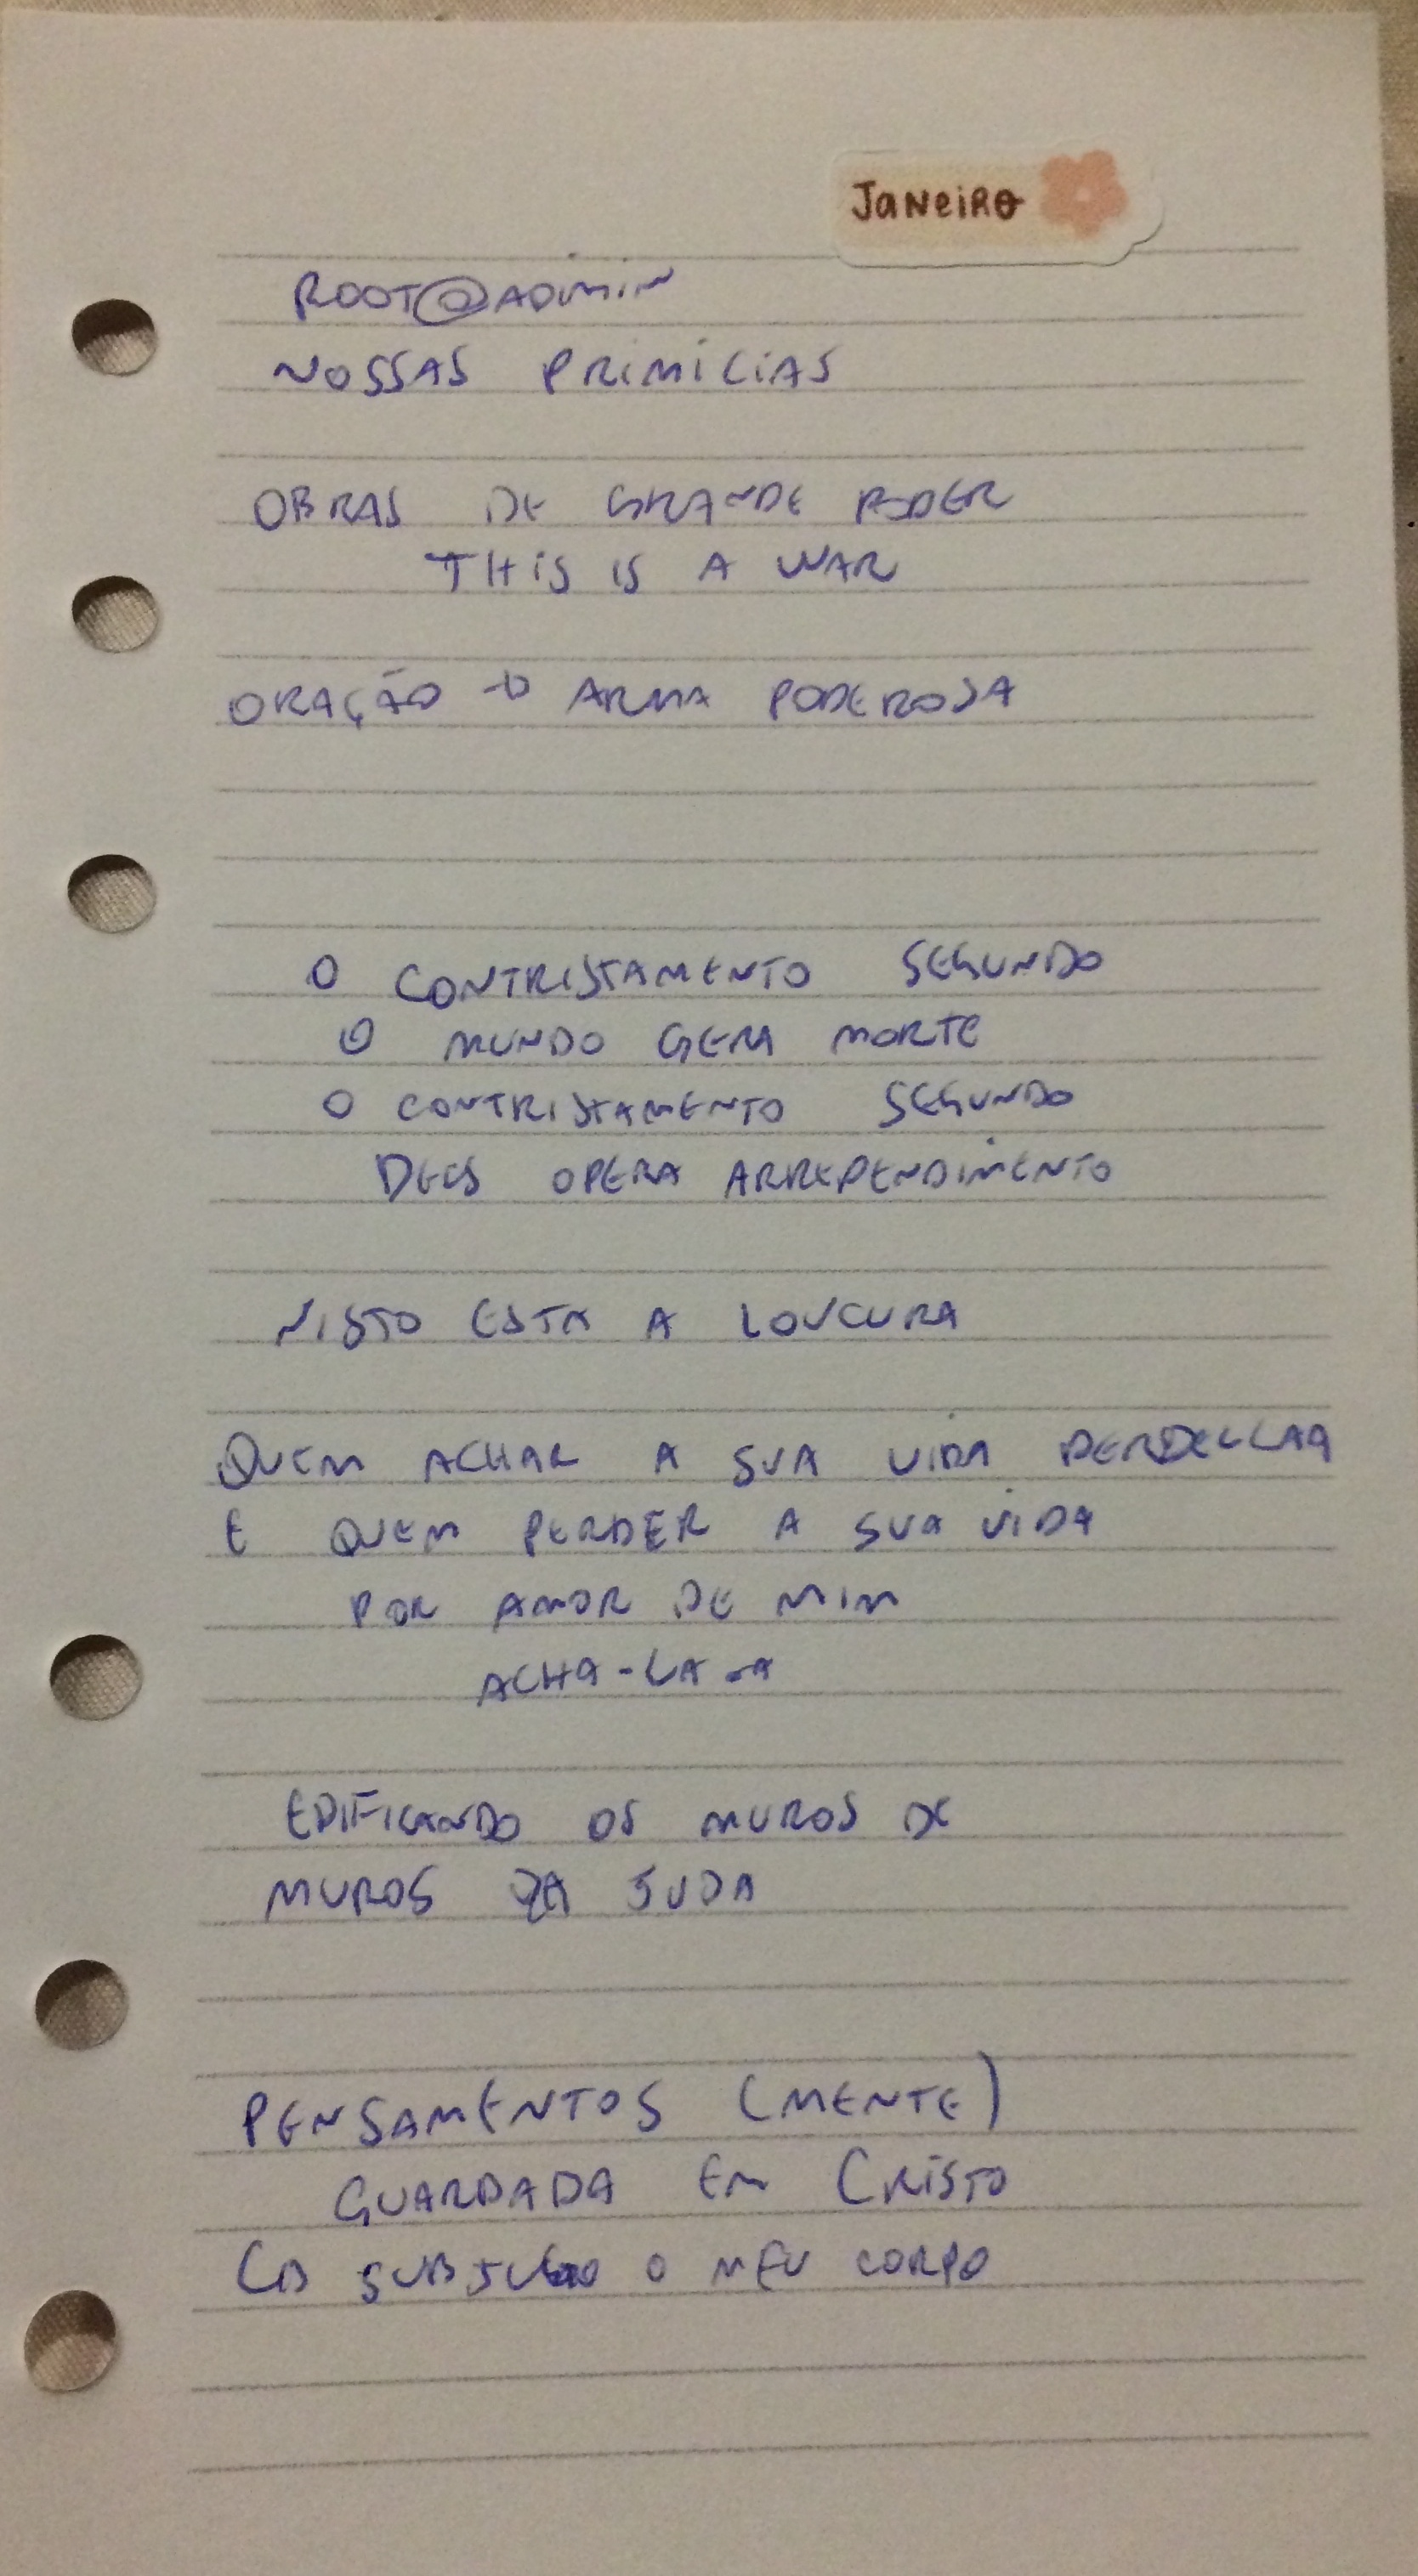 Janeiro
ROOT@ADMIN
NOSSAS PRIMÍCIAS
OBRAS DE GRANDE PODER
THIS IS A WAR
ORAÇÃO → ARMA PODEROSA
O CONTRISTAMENTO SEGUNDO
O MUNDO GERA MORTE
O CONTRISTAMENTO SEGUNDO
DEUS OPERA ARREPENDIMENTO
NISTO ESTA A LOUCURA
QUEM ACHAR A SUA VIDA
E QUEM PERDER A SUA VIDA
POR AMOR DE MIM
ACHA-LA-A
EDIFICANDO OS MUROS DE
MUROS DA JUDA
PENSAMENTOS (MENTE)
GUARDADA EM CRISTO
SUBJUGO O MEU CORPO